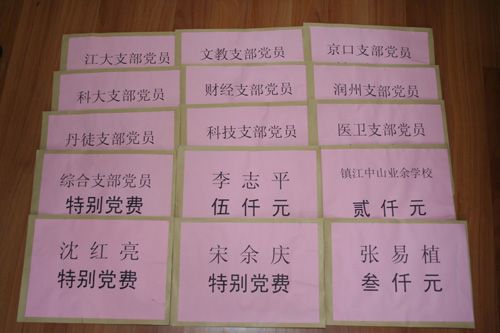 江大支部党员
文教支部党员
京口支部党员
科大支部党员
财经支部党员
润州支部党员
丹徒支部党员
科技支部党员
医卫支部党员
综合支部党员
特别党费
李志平
伍仟元
镇江中山业余学校
贰仟元
沈红亮
特别党费
宋余庆
特别党费
张易植
叁仟元